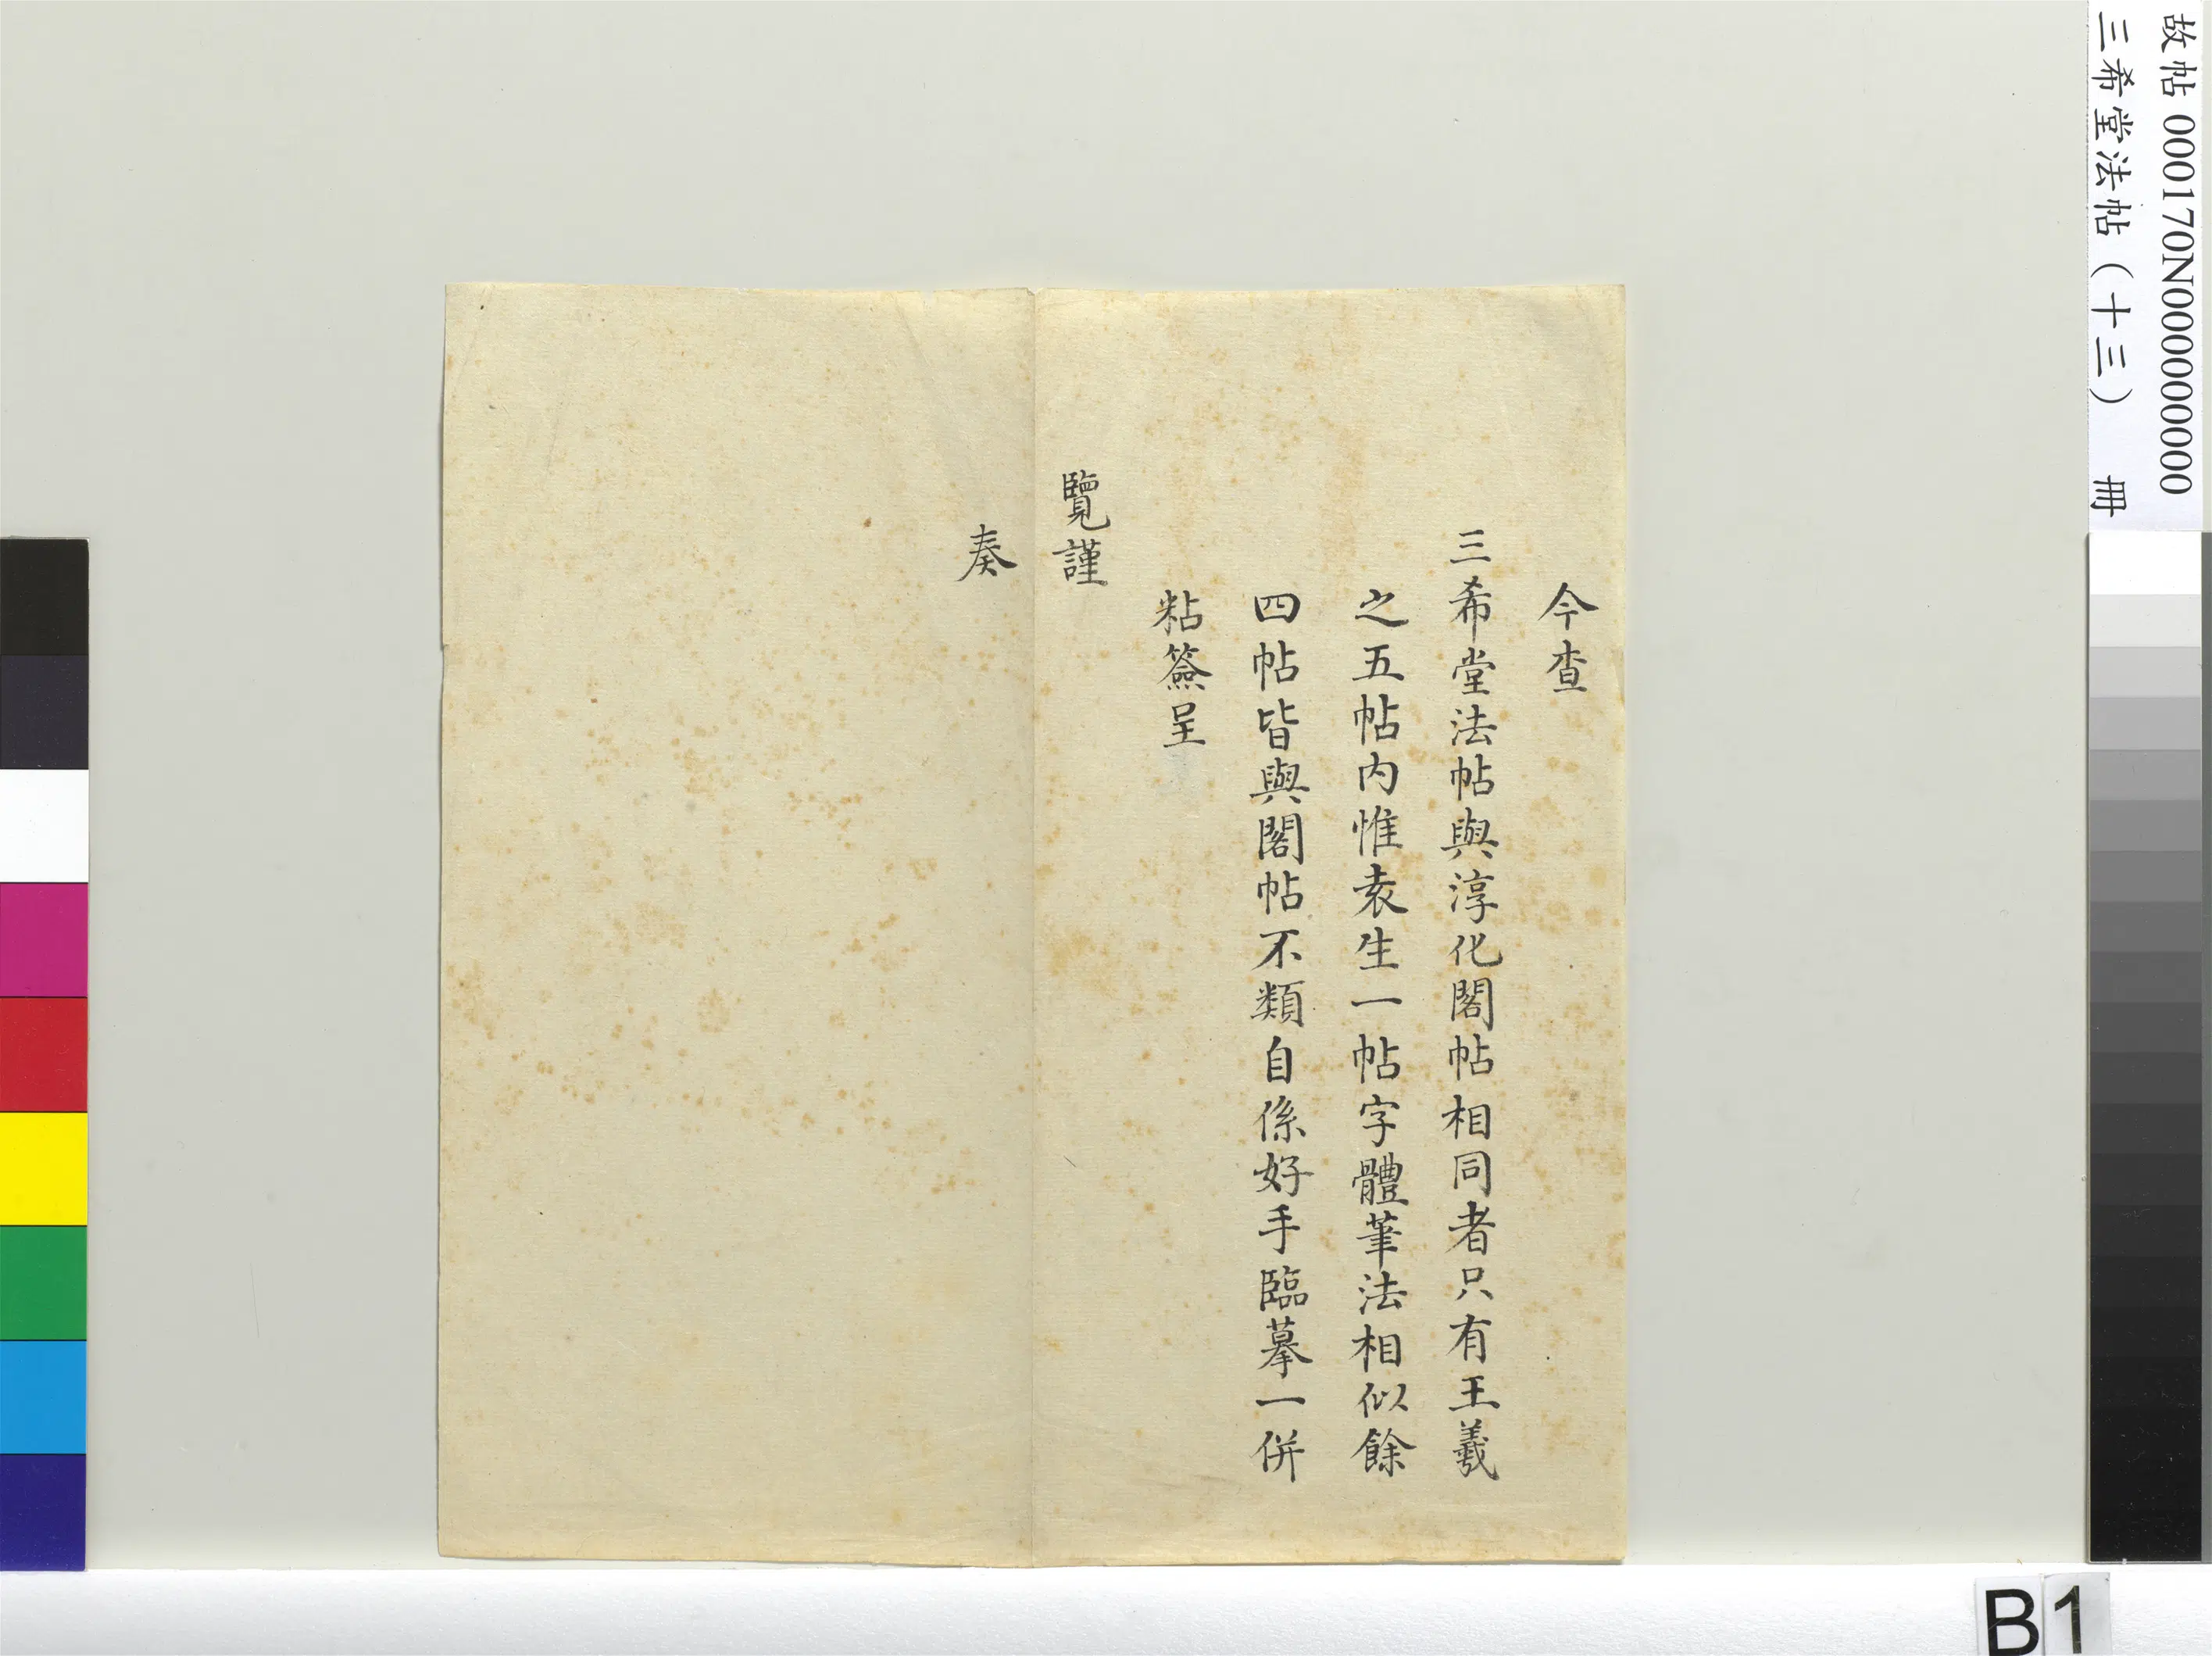 故帖 000170N000000000
三希堂法帖（十三） 冊
今查
三希堂法帖與淳化閣帖相同者只有王羲
之五帖内惟袁生一帖字體筆法相似餘
四帖皆與閣帖不類自係好手臨摹一併
粘簽呈
覽謹
奏
B1